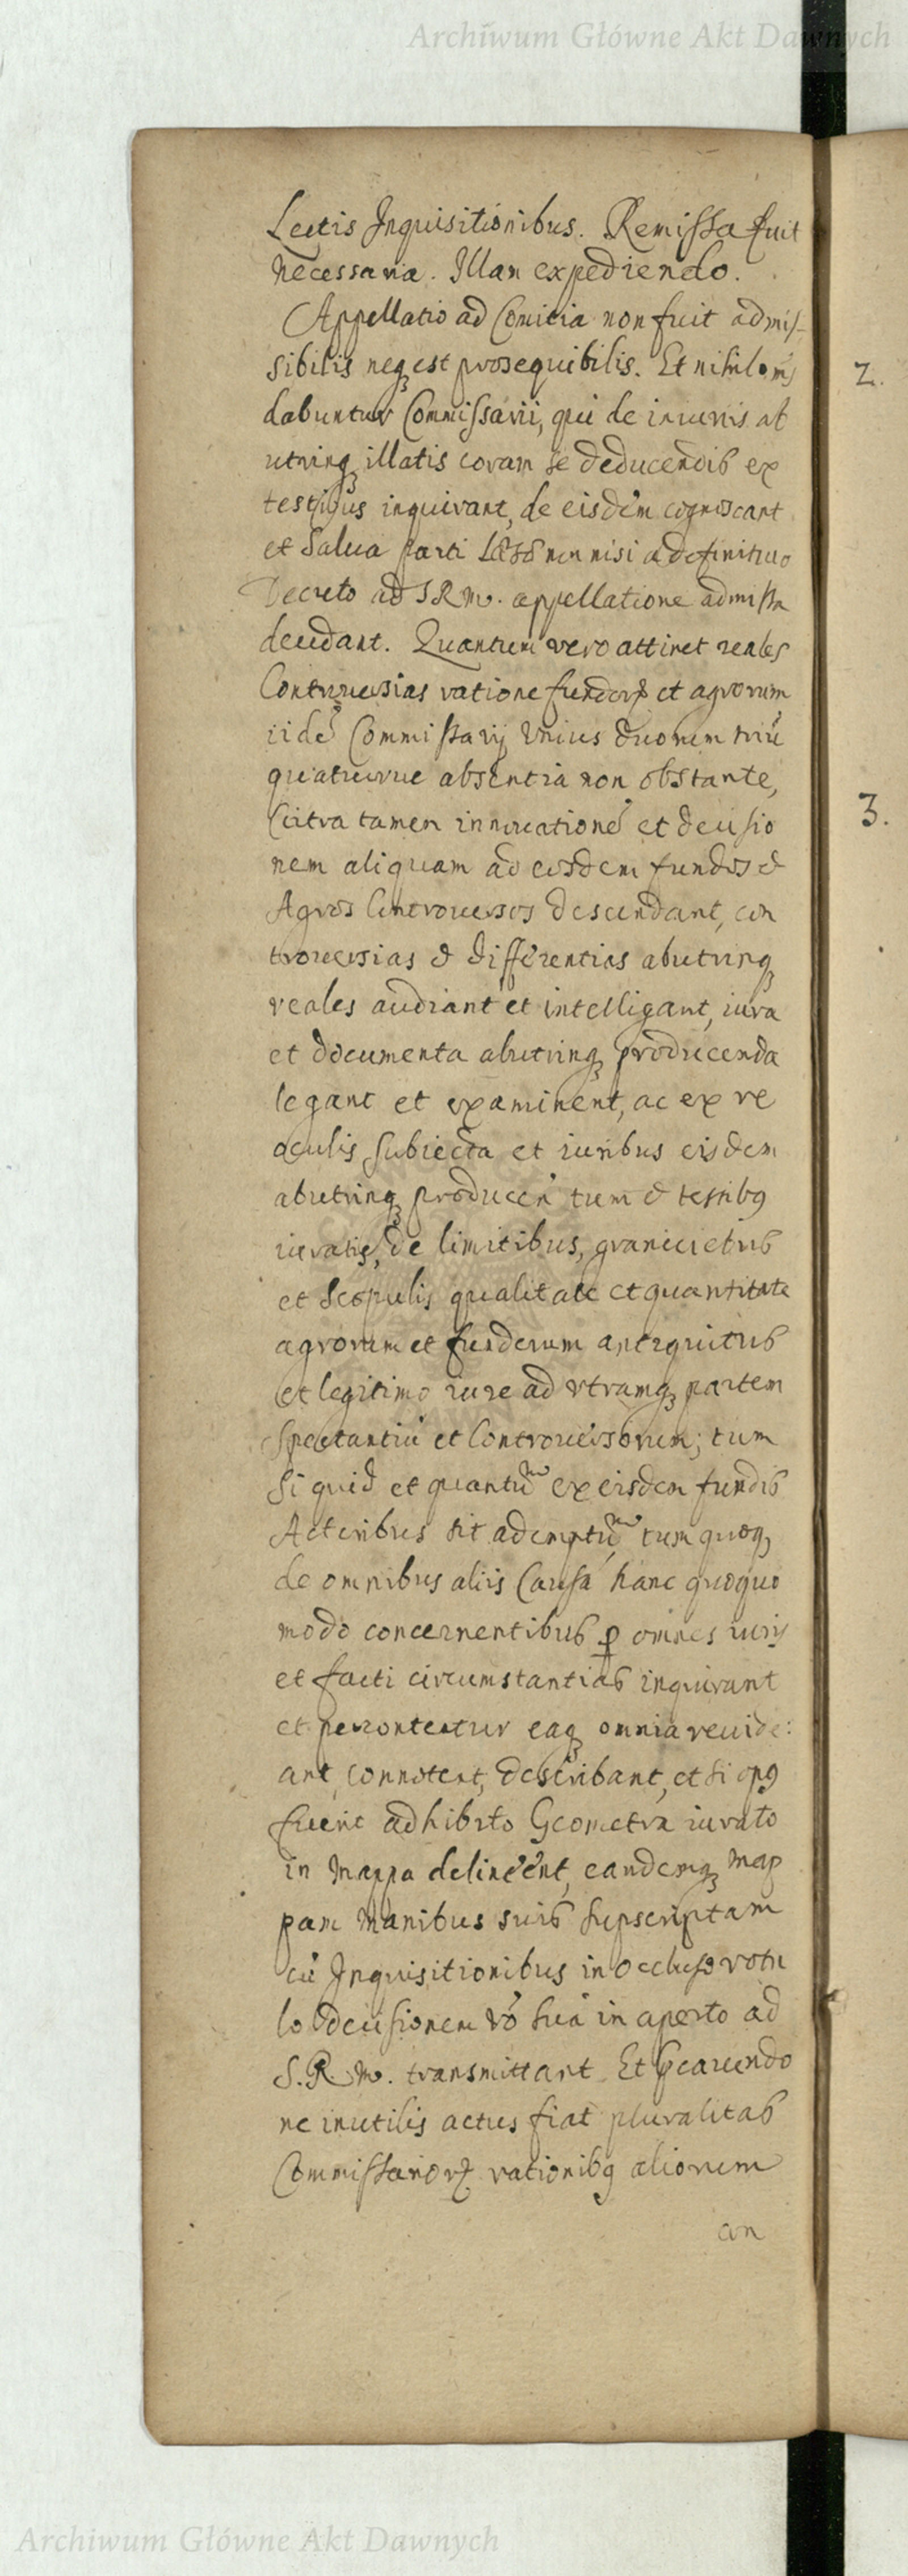 Archiwum Główne Akt Dawnych
Lectis Inquisitionibus. Remissa fuit
necessaria. Illam expediendo.
Appellatio ad Comitia non fuit admis-
sibilis neqꝫ est prosequibilis. Et nihilom̃
dabuntur Commissarii, qui de iniuriis ab
utrinqꝫ illatis coram se deducendis ex
testibus inquirant, de eisdem cognoscant
et salua parti non nisi a definitiuo
Decreto ad S R M. appellatione admissa
decidant. Quantum vero attinet reales
Controuersias ratione fundorꝝ et agrorum
iidē Commissarij Vnius duorum triū
quatuorue absentia non obstante,
Citra tamen innouationē et decisio
nem aliquam ad eosdem fundos et
Agros Controuersos descendant, con
trouersias et differentias abutrinqꝫ
reales audiant et intelligant, iura
et documenta abutrinqꝫ producenda
legant et examinent, ac ex re
oculis subiecta et iuribus eisdem
abutrinqꝫ producen̄ tum et testibꝰ
iuratis, de limitibus, graniciebus
et scopulis qualitate et quantitate
agrorum et fundorum antiquitus
et legitimo iure ad vtramqꝫ partem
spectantiū et Controuersorum; tum
si quid et quantū ex eisdem fundis
Actoribus sit ademptū, tum quoqꝫ
de omnibus aliis Causā hanc quoquo
modo concernentibus ꝑ omnes iuris
et facti circumstantias inquirant
et percontentur eaqꝫ omnia reuide:
ant, connotent, describant, et si opꝰ
fuerit adhibito Geometra iurato
in Mappa delineent, eandemqꝫ Map
pam Manibus suis supscriptam
cū Inquisitionibus in Occluso rotu
lo decisionem vō suā in aperto ad
S. R. M. transmittant. Et praecauendo
ne inutilis actus fiat pluralitas
Commissariorꝝ rationibꝰ aliorum
an
2.
3.
Archiwum Główne Akt Dawnych